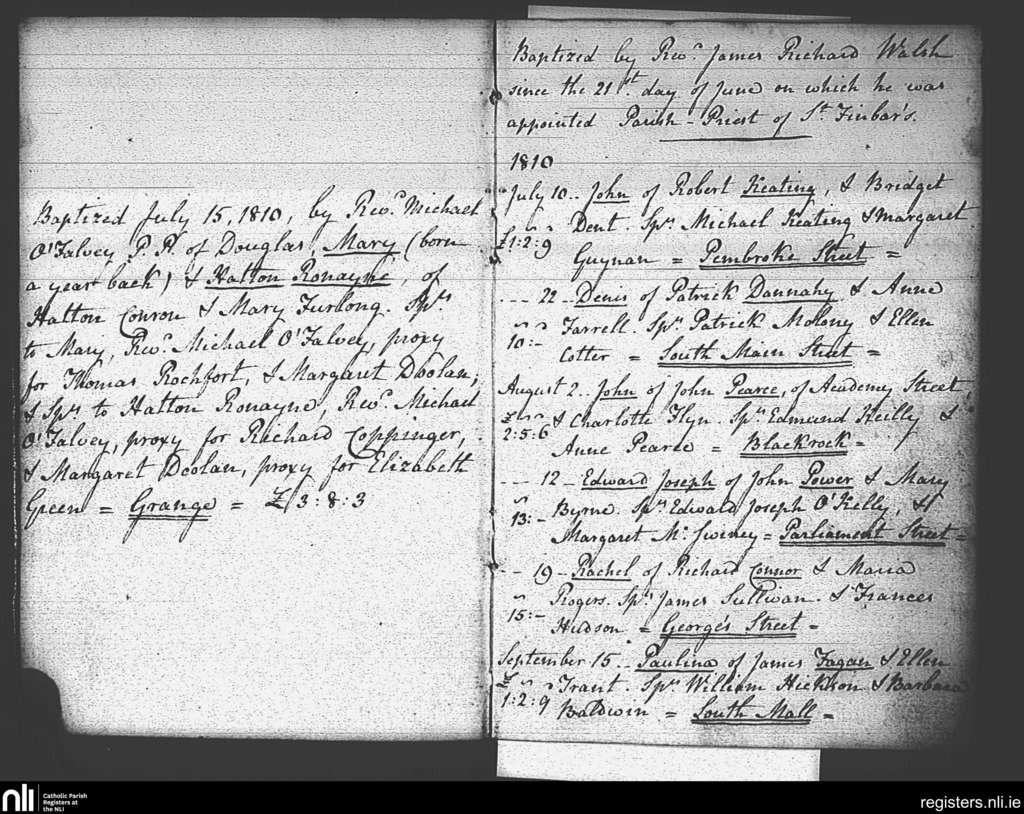 Baptized July 15, 1810, by Revd. Michael
O'Falvey P.P. of Douglas, Mary (born
a year back) & Hatton Ronayne, of
Hatton Conron & Mary Furlong. Sprs.
to Mary, Revd. Michael O'Falvey, proxy
for Thomas Rochfort, & Margaret Doolan;
& Sprs. to Hatton Ronayne, Revd. Michael
O'Falvey, proxy for Richard Coppinger,
& Margaret Doolan, proxy for Elizabeth
Green = Grange = £3:8:3
Baptized by Revd. James Richard Walsh
since the 21st. day of June on which he was
appointed Parish-Priest of St. Finbar's.
1810
July 10.. John of Robert Keating, & Bridget
Dent. Sprs. Michael Keating & Margaret
£1:2:9
Guynan = Pembroke Street =
... 22.. Denis of Patrick Dannahy & Anne
Farrell. Sprs. Patrick Molony & Ellen
10:-
Cotter = South Main Street =
August 2.. John of John Pearce, of Academy Street
£2:5:6
& Charlotte Flyn. Sprs. Edmund Reilly &
Anne Pearce = Blackrock =
... 12 - Edward Joseph of John Power & Mary
Byrne. Sprs. Edward Joseph O'Kelly, &
13:-
Margaret Mc. Swiney = Parliament Street =
.. 19 - Rachel of Richard Connor & Maria
Rogers. Sprs. James Sullivan. & Frances
15:-
Hudson = George's Street =
September 15.. Paulina of James Fagan & Ellen
£1:2:9
Trant. Sprs. William Hickson & Barbara
Baldwin = South Mall =
nli
Catholic Parish
Registers at
the NLI
registers.nli.ie